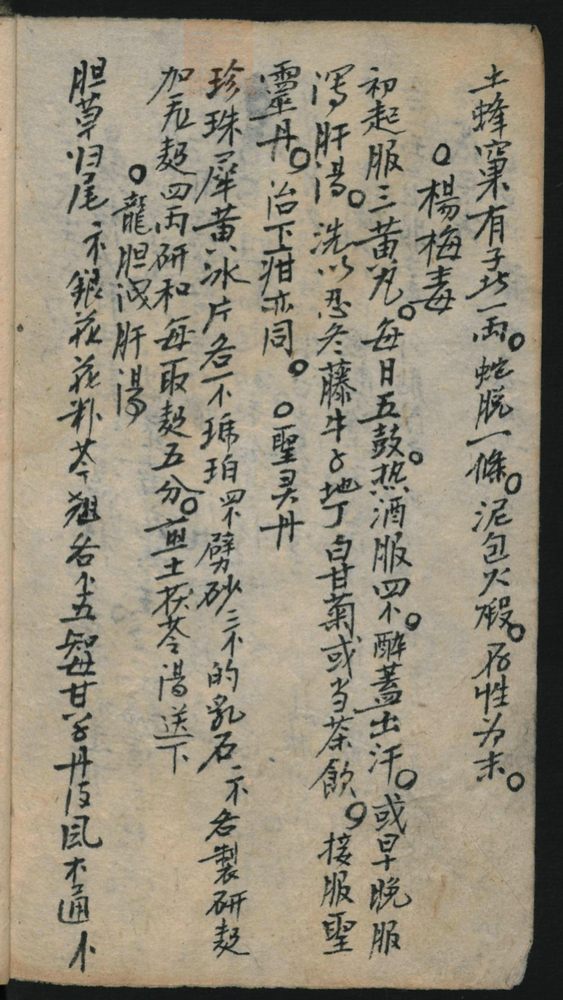 土蜂窠有子者一両。蛇脫一條。泥包火煅。存性为末。
○楊梅毒
初起服三黄丸。每日五鼓。热酒服四下。醉蓋出汗。或早晚服
瀉肝湯。洗以忍冬藤牛子地丁白甘菊或当茶飲。接服聖
靈丹。治下疳亦同。○聖灵丹
珍珠犀黄冰片各一下琥珀四下劈砂三下的乳石二下各製研
加麦麸四両研和每取五分。煎土茯苓湯送下
○龍胆泄肝湯
胆草归尾二下銀花花粉芩翘各下五知母甘草丹皮風木通下